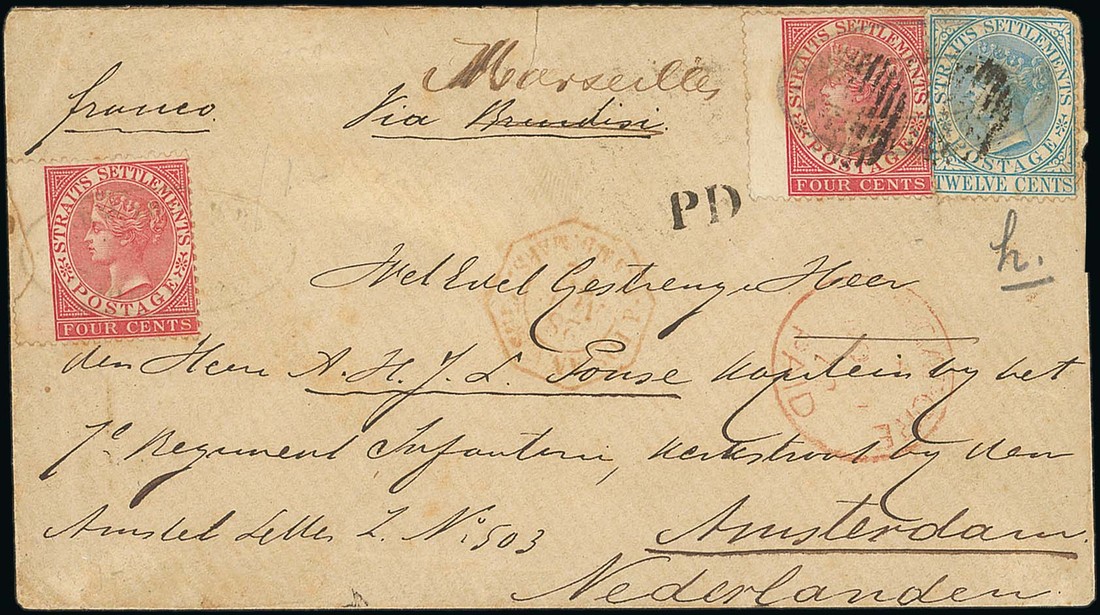 Marseille
franco
Via Brindisi
STRAITS SETTLEMENTS
POSTAGE
FOUR CENTS
STRAITS SETTLEMENTS
POSTAGE
TWELVE CENTS
STRAITS SETTLEMENTS
POSTAGE
FOUR CENTS
PD
h.
WelEdel Gestrenge Heer
den Heer A. H. J. L. Fouse Kapitein by het
7e Regiment Infanterie, Kerkstraat by den
Amstel Letter L. No: 503
Amsterdam.
Nederlanden.
PAID